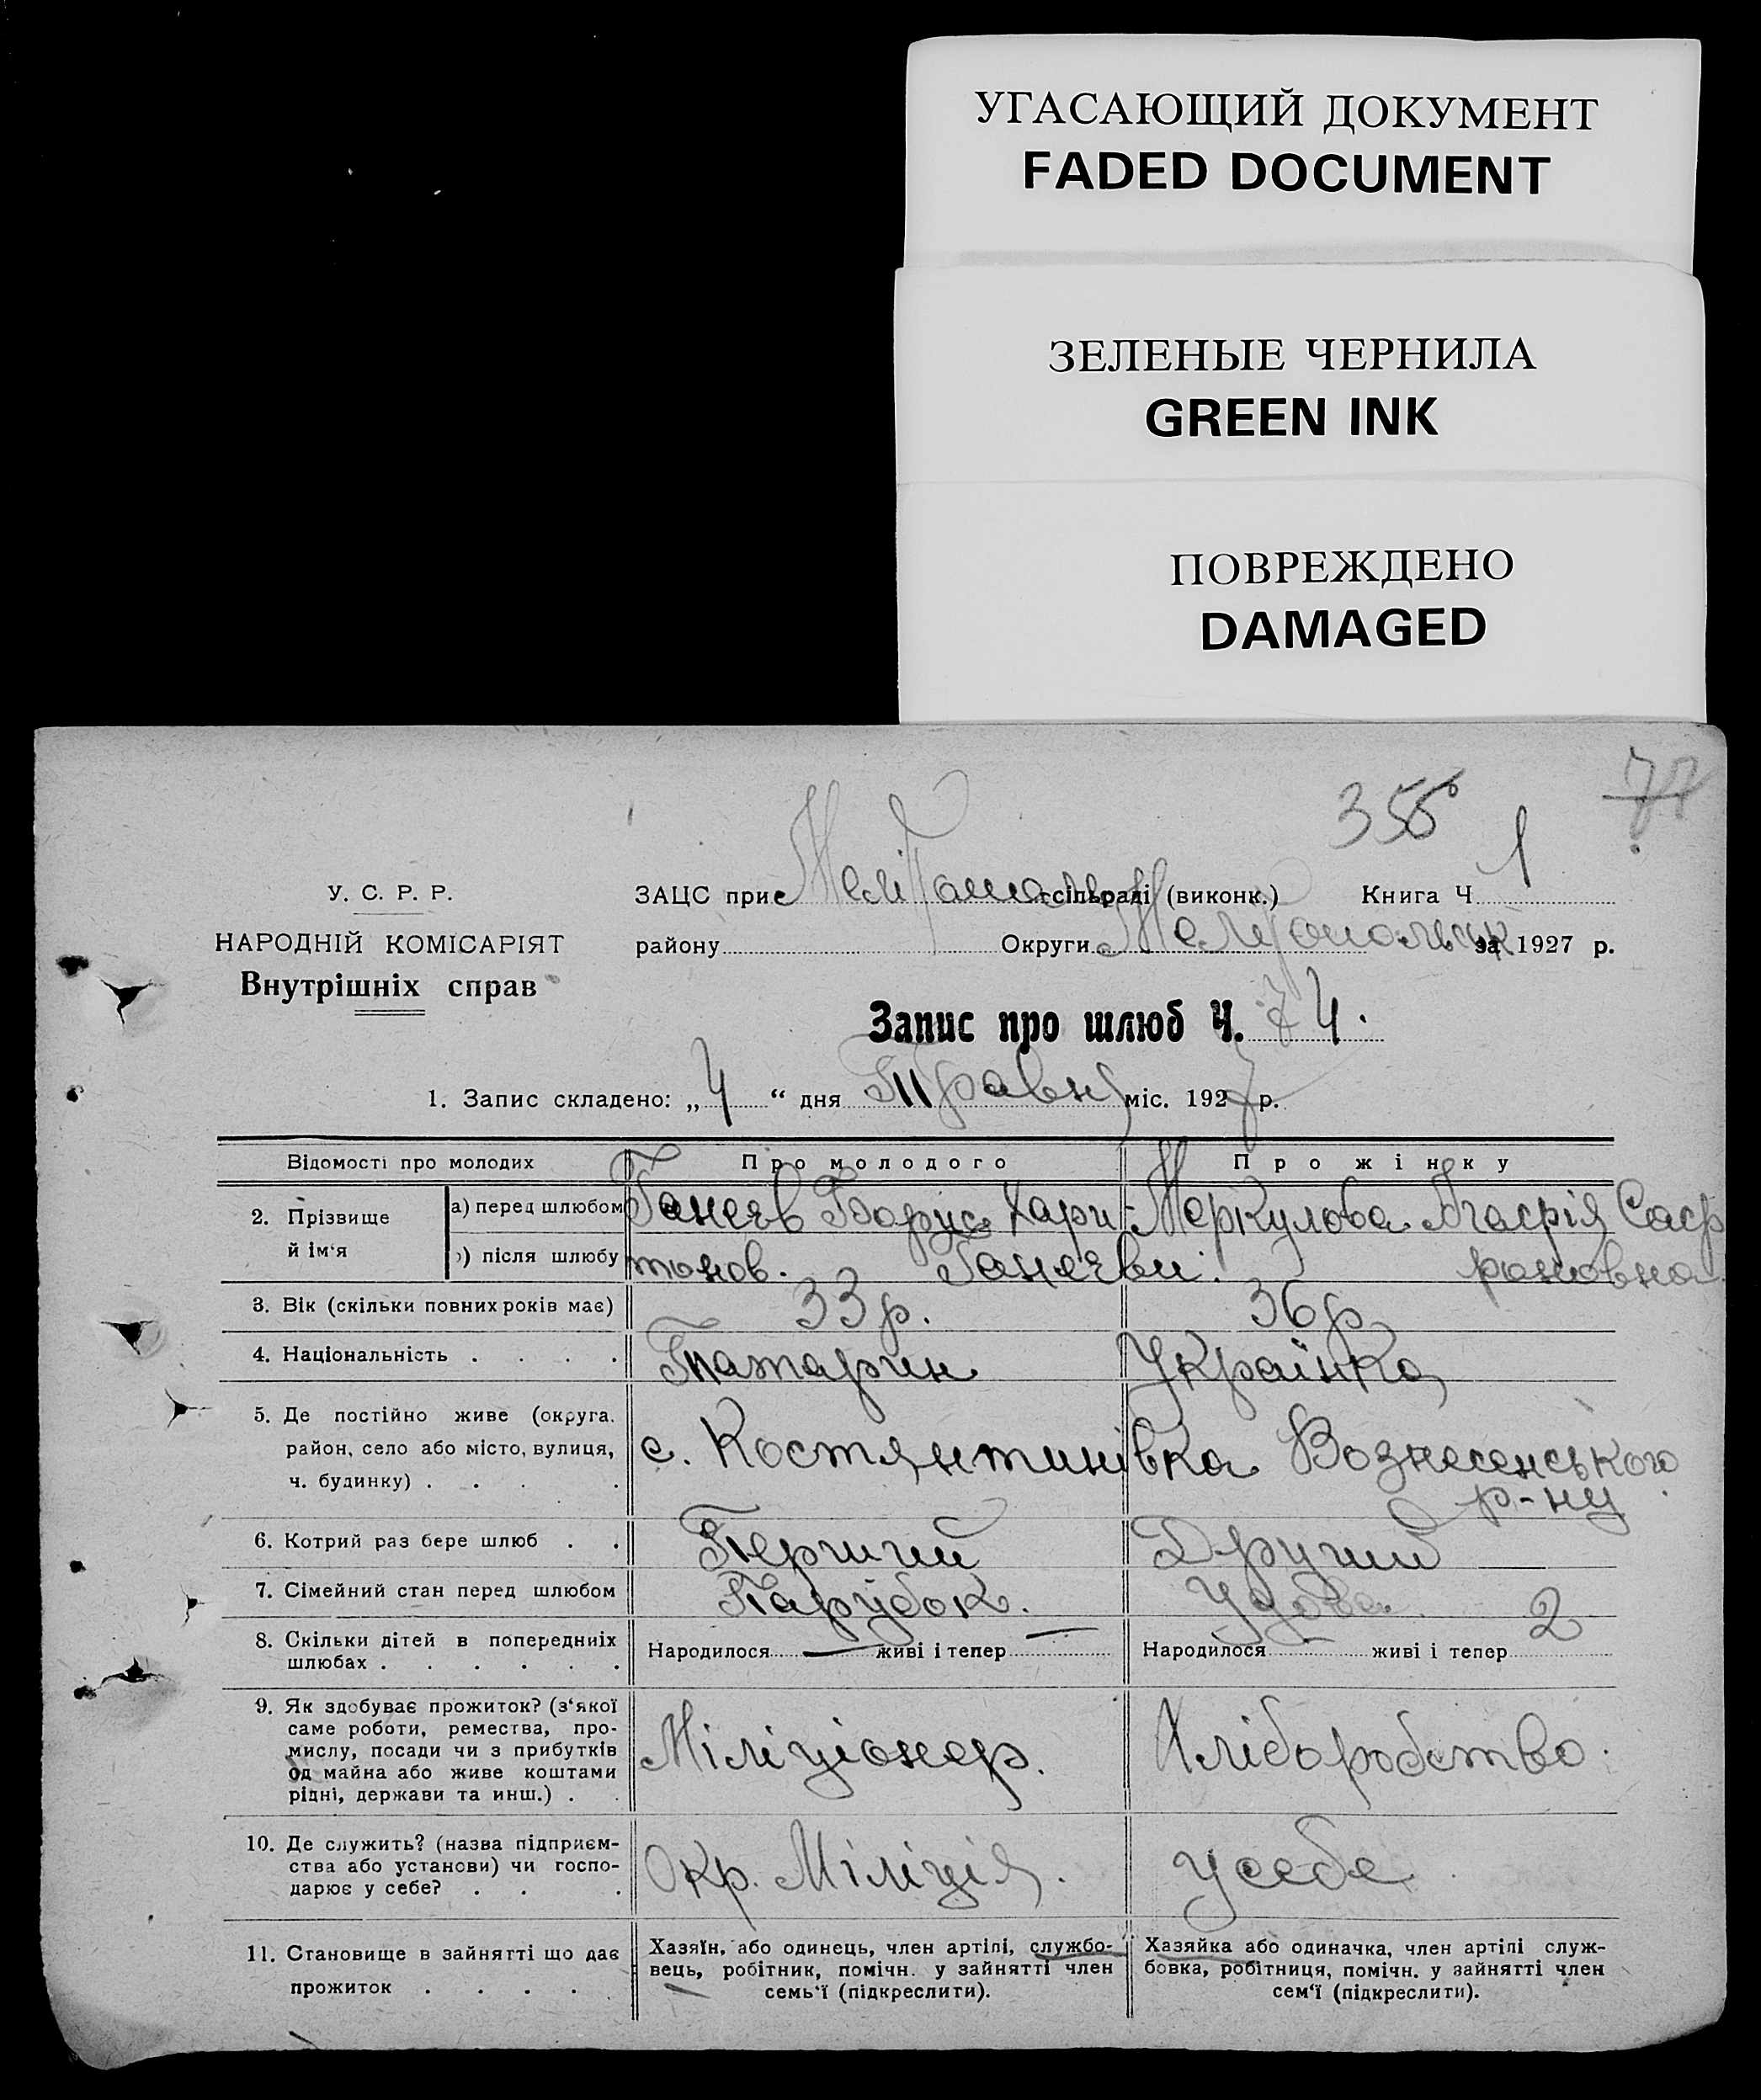 УГАСАЮЩИЙ ДОКУМЕНТ
FADED DOCUMENT
ЗЕЛЕНЫЕ ЧЕРНИЛА
GREEN INK
ПОВРЕЖДЕНО
DAMAGED
355
77
У. С. Р. Р.
ЗАЦС при сільраді (виконк.) Книга Ч 1
НАРОДНІЙ КОМІСАРІЯТ
району Округи за 1927 р.
Внутрішніх справ
Запис про шлюб Ч. 74.
1. Запис складено: „4“ дня Травня міс. 1927 р.
Відомості про молодих Про молодого Про жінку
2. Прізвище й ім‘я
а) перед шлюбом Ганеєв Хари- Меркулова
) після шлюбу тонов. Ганеєви.
3. Вік (скільки повних років має) 33 р. 36 р.
4. Національність Татарин Українка
5. Де постійно живе (округа, район, село або місто, вулиця, ч. будинку) с. Костянтинівка Вознесенського р-ну
6. Котрий раз бере шлюб Перший Другий
7. Сімейний стан перед шлюбом Парубок. Удова.
8. Скільки дітей в попередніх шлюбах Народилося — живі і тепер — Народилося — живі і тепер 2
9. Як здобуває прожиток? (з‘якої
саме роботи, ремества, про-
мислу, посади чи з прибутків
од майна або живе коштами
рідні, держави та инш.) Міліціонер. Хліборобство.
10. Де служить? (назва підприєм-
ства або установи) чи госпо-
дарює у себе? Окр. Міліція. у себе
11. Становище в зайнятті що дає
прожиток
Хазяїн, або одинець, член артілі, службо-
вець, робітник, помічн. у зайнятті член
семь‘ї (підкреслити).
Хазяйка або одиначка, член артілі служ-
бовка, робітниця, помічн. у зайнятті член
сем‘ї (підкреслити).